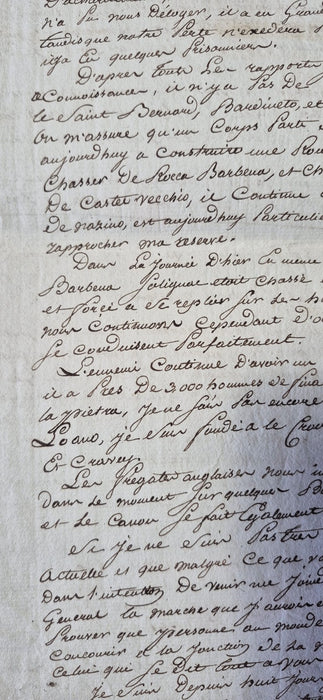 n'a Pu nous Deloger, il a eu Grand
tandisque notre Perte n'exedera P
il y a Eu quelques Prisonniers.
D'apres toute Les rapports
Connoissances, il n'y a Pas De
le Saint Bernard, Bardineto, et
On m'assure qu'un Corps Parti
aujourdhuy a Construire une Rou
Chasser De Rocca Barbena, et Ch
De Castel Vecchio, il Continue
de nazino, est aujourdhuy Particulie
rapprocher ma reserve.
Dans La Journée D'hier L'Ennemi
Barbena jusliqual etoit Chassé
et forcé a Se replier Sur Les h
nous Continuons Cependant d'o
Se Conduisent Parfaitement.
L'ennemi Continue D'avoir un
il a Pres De 3.000 hommes de
la pietra, je ne Sais Pas encore
Loano, je Suis fondé a le Cro
Et Cravey.
Les fregates anglaises nous in
dans le moment Sur quelques B
et le Canon Se fait Egalement
Si je ne Suis Pas tres
Actuelle et que malgré Ce que vo
Dans l'intention De venir me Join
General la marche que j'aurois
Prouver que Personne au monde
Concourir a la Jonction De La
Celui qui Se Dit tout a vous
Je Suis Depuis huit Jour